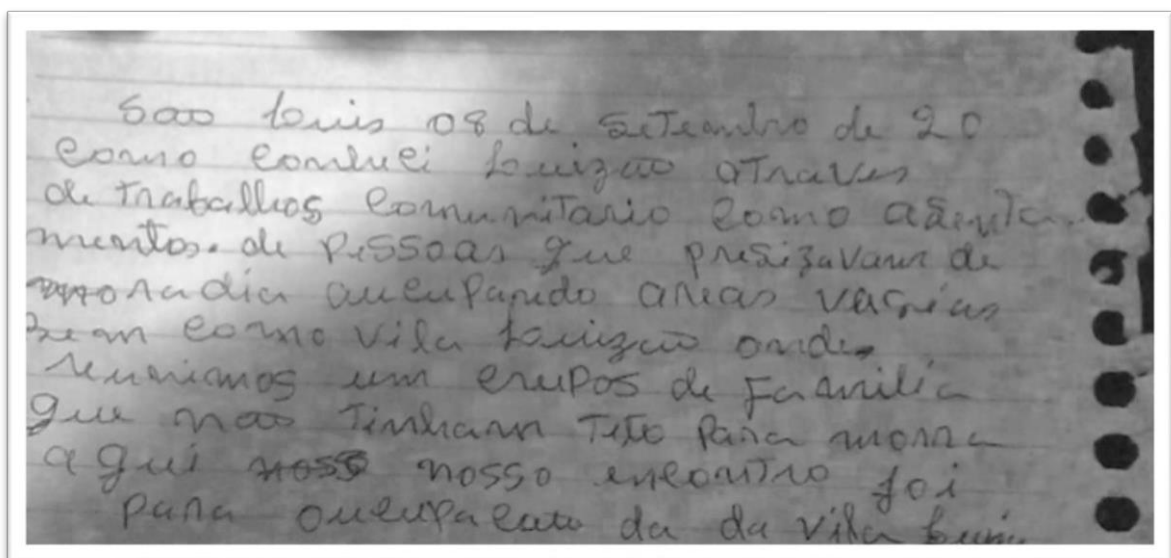 Sao Luis 08 de Setembro de 20
como conheci Luizao atraves
de trabalhos comunitario como asenta
mentos. de pessoas que presizavam de
moradia oucupando areas vasias
bem como vila Luizao onde
reunimos um grupos de familia
que nao tinham teto para morra
aqui nosso encontro foi
para oucupacato da da vila Luiz